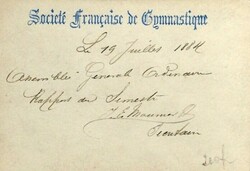 Société Française de Gymnastique
Le 19 Juillet 1884
Assemblée Generale Ordinaire
Rapport du Semestre